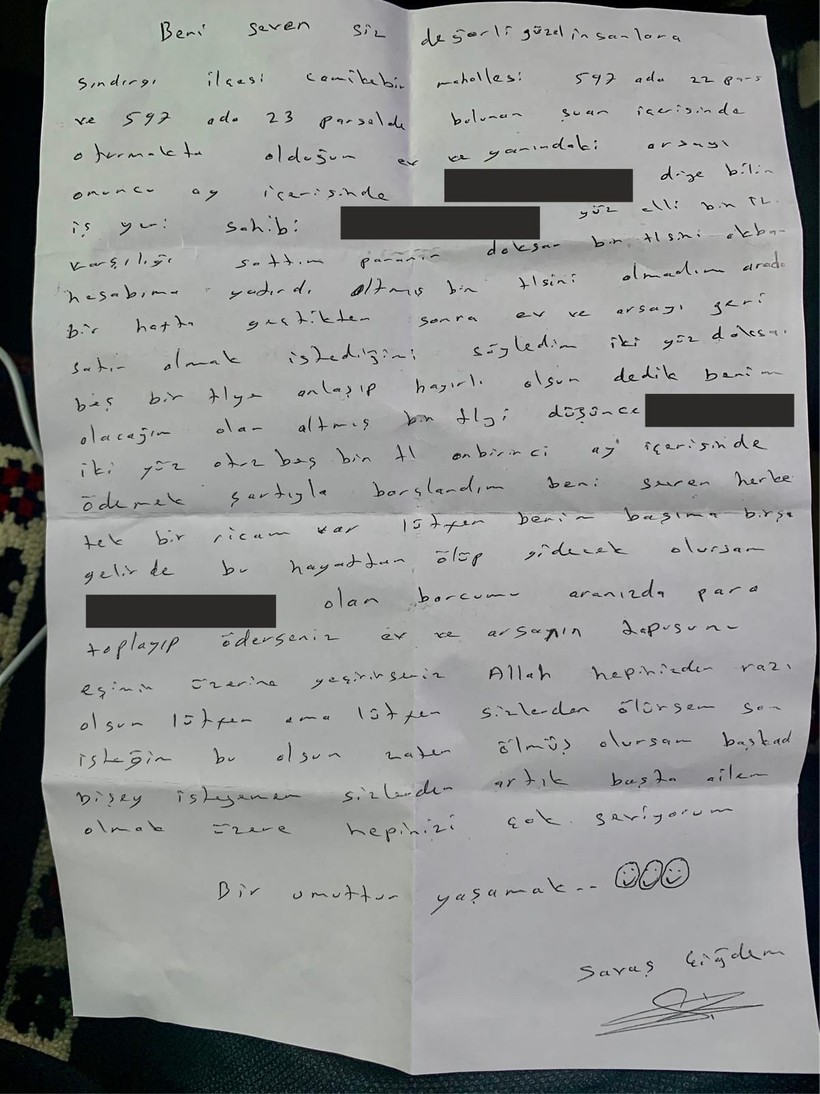 Beni seven siz değerli güzel insanlara
Sındırgı ilçesi camikebir mahallesi 597 ada 22 pars
ve 597 ada 23 parselde bulunan şuan içerisinde
oturmakta olduğum ev ve yanındaki arsayı
onuncu ay içerisinde dize bilin
iş yeri sahibi yüz elli bin TL
karşılığı sattım paranın doksan bin tlsini akban
hesabıma yatırdı altmış bin tlsini almadım arada
bir hafta geçtikten sonra ev ve arsayı geri
satın almak istediğimi söyledim iki yüz doksan
beş bin tlye anlaşıp hayırlı olsun dedik benim
alacağım olan altmış bin tlyi düşünce
iki yüz otuz beş bin tl onbirinci ay içerisinde
ödemek şartıyla borçlandım beni seven herke
tek bir ricam var lütfen benim başıma birşe
gelir de bu hayattan ölüp gidecek olursam
olan borcumu aranızda para
toplayıp öderseniz ev ve arsanın tapusunu
eşimin üzerine geçirirseniz Allah hepinizden razı
olsun lütfen ama lütfen sizlerden ölürsem son
isteğim bu olsun zaten ölmüş olursam başkad
bişey isteyemem sizlerden artık başta ailem
olmak üzere hepinizi çok seviyorum
Bir umuttur yaşamak--
Savaş Çiğdem